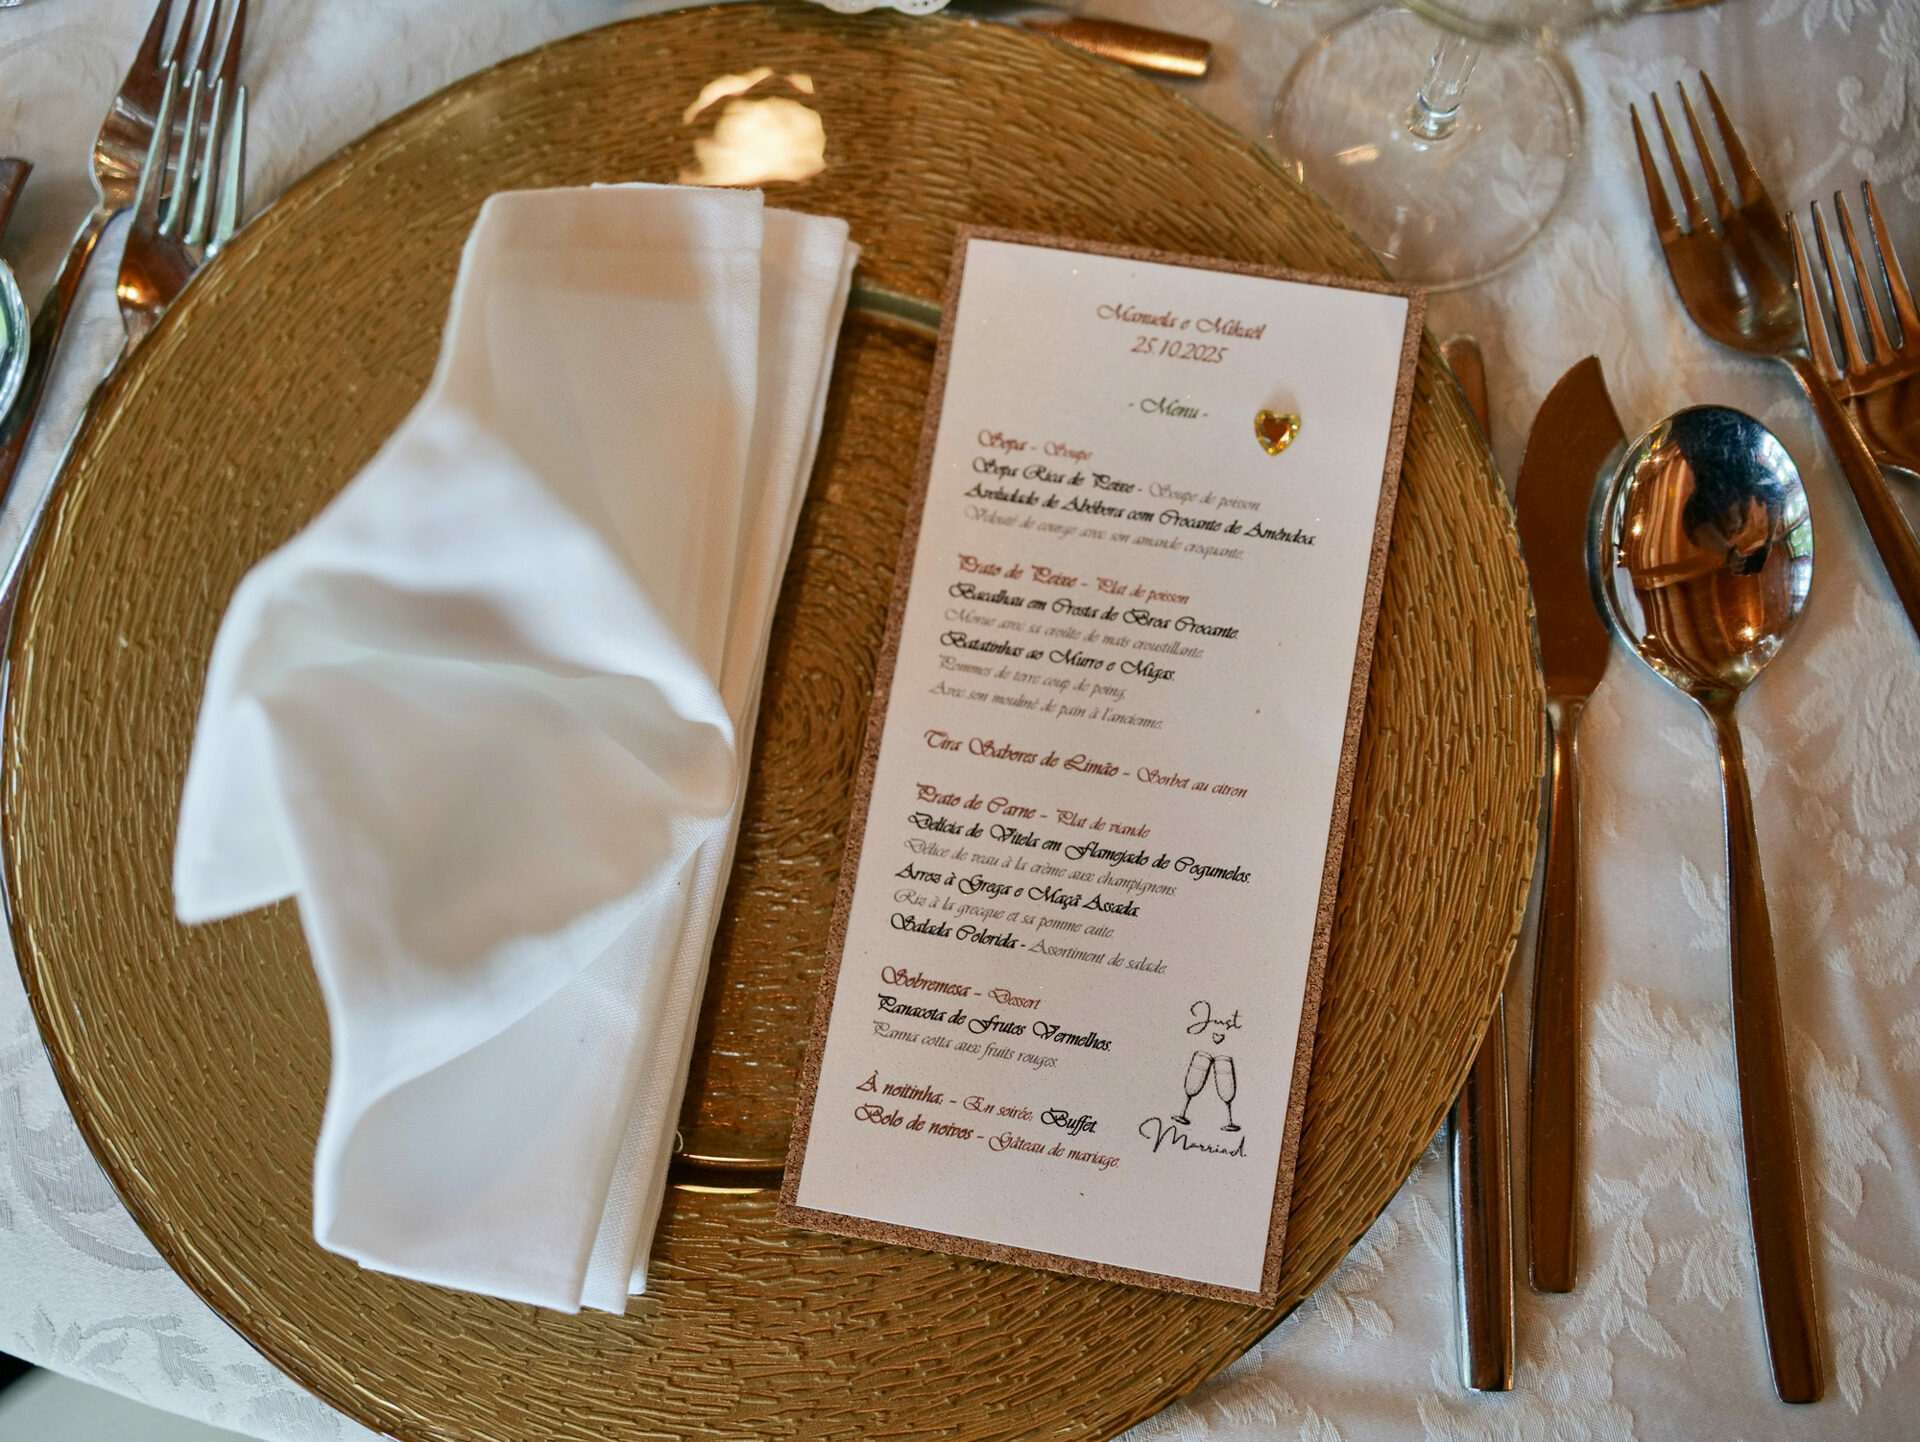 Manuela e Mikaël
25.10.2025
- Menu -
Sopa - Soupe
Sopa Rica de Peixe - Soupe de poisson
Aveludado de Abóbora com Crocante de Amêndoa.
Velouté de courge avec son amande croquante.
Prato de Peixe - Plat de poisson
Bacalhau em Crosta de Broa Crocante.
Morue avec sa croûte de maïs croustillante.
Batatinhas ao Murro e Migas.
Pommes de terre coup de poing,
Avec son mouliné de pain à l'ancienne.
Tira Sabores de Limão - Sorbet au citron
Prato de Carne - Plat de viande
Delícia de Vitela em Flamejado de Cogumelos.
Délice de veau à la crème aux champignons.
Arroz à Grega e Maçã Assada.
Riz à la grecque et sa pomme cuite.
Salada Colorida - Assortiment de salade.
Sobremesa - Dessert
Panacota de Frutos Vermelhos.
Panna cotta aux fruits rouges.
À noitinha: - En soirée: Buffet.
Bolo de noivos - Gâteau de mariage.
Just
Married.